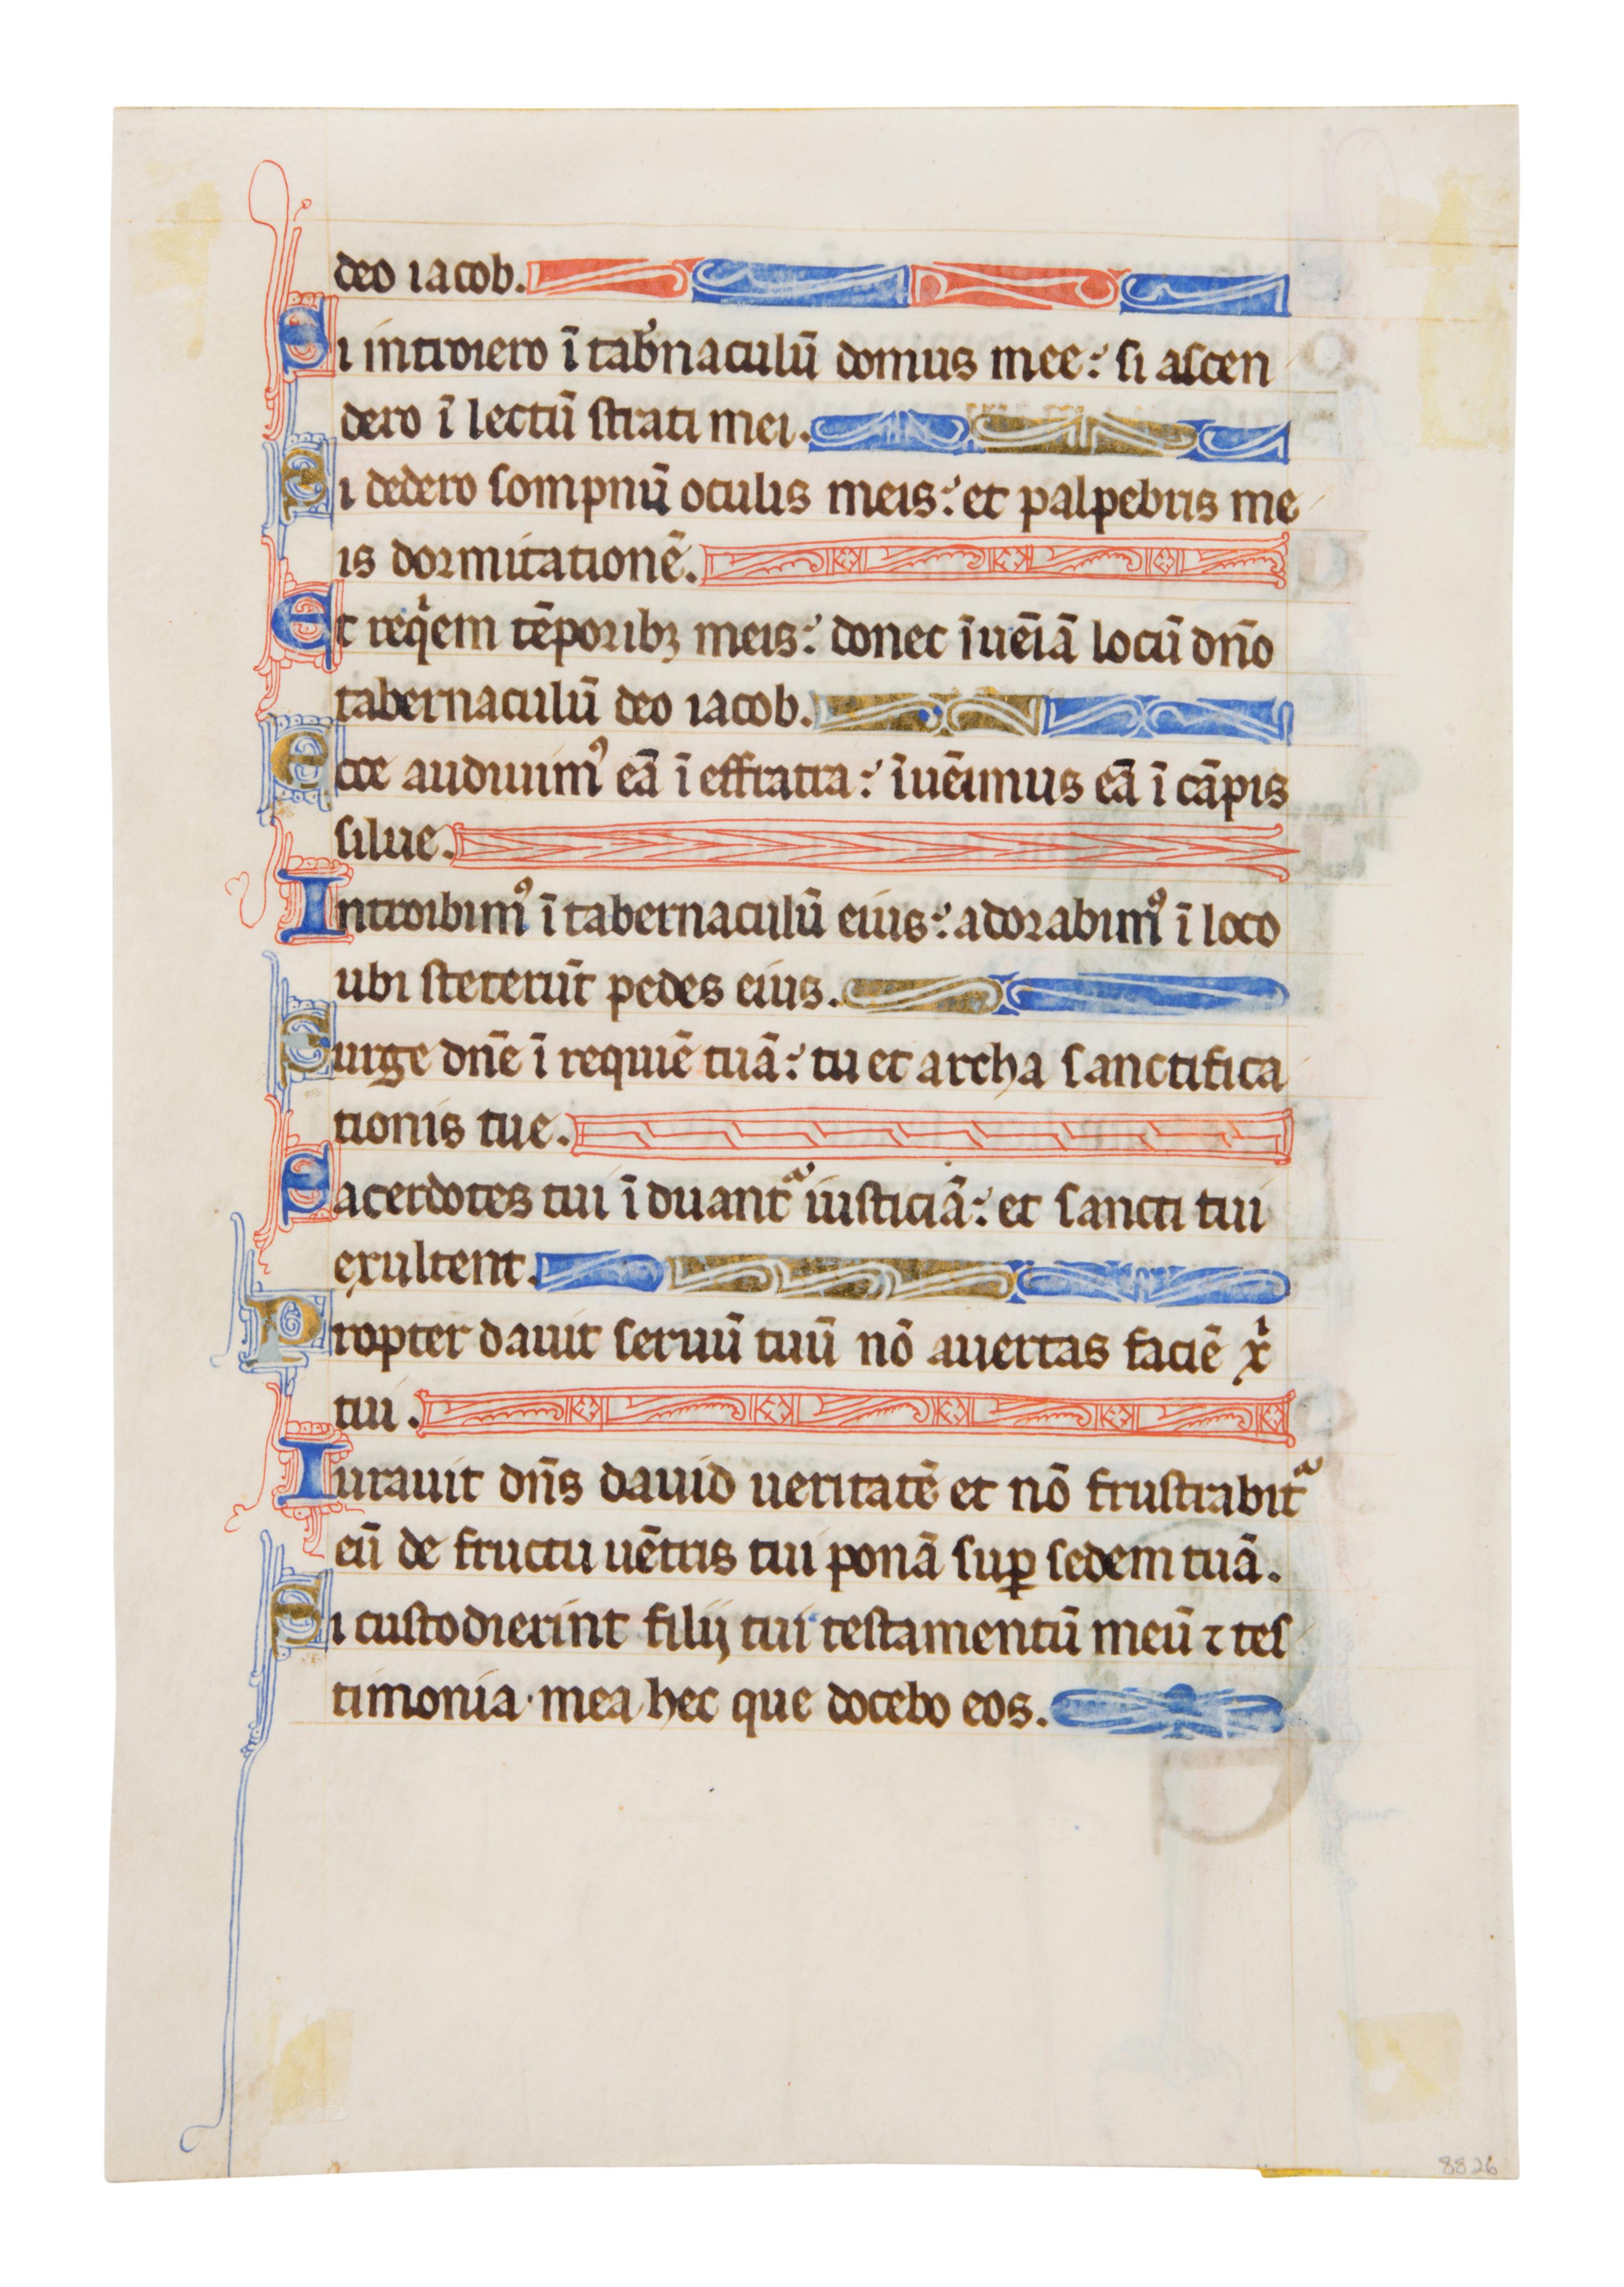 deo iacob.
Si introiero ī tab̉naculū domus mee: si ascen
dero ī lectū strati mei.
Si dedero sompnū oculis meis: et palpebris me
is dormitationē.
Et reqͥem tēporibꝫ meis: donec īuēiā locū dn̄o
tabernaculū deo iacob.
Ecce audiuimꝰ eā ī effrata: īuēimus eā ī cāpis
silue.
Introibimꝰ ī tabernaculū eius: adorabimꝰ ī loco
ubi steterūt pedes eius.
Surge dn̄e ī requiē tuā: tu et archa sanctifica
tionis tue.
Sacerdotes tui īduantᷓ iusticiā: et sancti tui
exultent.
Propter dauit seruū tuū nō auertas faciē xͥ
tui.
Iurauit dn̄s dauid ueritatē et nō frustrabitᷓ
eū de fructu uētris tui ponā suꝑ sedem tuā.
Si custodierint filij tui testamentū meū ⁊ tes
timonia mea hec que docebo eos.
8826